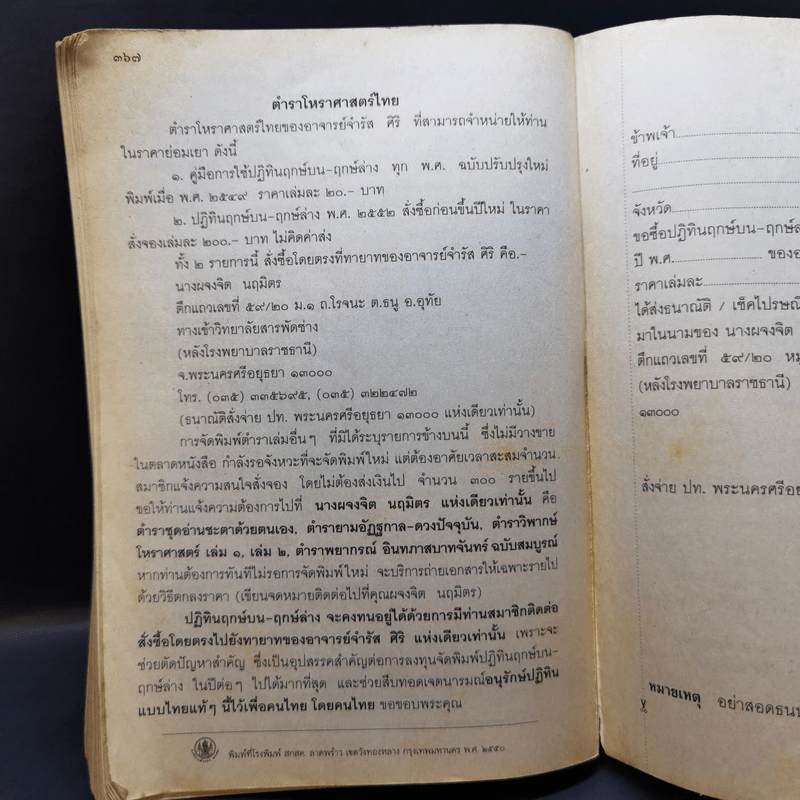 ๓๖๗
ตำราโหราศาสตร์ไทย
ตำราโหราศาสตร์ไทยของอาจารย์จำรัส ศิริ ที่สามารถจำหน่ายให้ท่าน
ในราคาย่อมเยา ดังนี้
๑. คู่มือการใช้ปฏิทินฤกษ์บน-ฤกษ์ล่าง ทุก พ.ศ. ฉบับปรับปรุงใหม่
พิมพ์เมื่อ พ.ศ. ๒๕๔๙ ราคาเล่มละ ๒๐.- บาท
๒. ปฏิทินฤกษ์บน-ฤกษ์ล่าง พ.ศ. ๒๕๕๒ สั่งซื้อก่อนขึ้นปีใหม่ ในราคา
สั่งจองเล่มละ ๒๐๐.- บาท ไม่คิดค่าส่ง
ทั้ง ๒ รายการนี้ สั่งซื้อโดยตรงที่ทายาทของอาจารย์จำรัส ศิริ คือ.-
นางผจงจิต นฤมิตร
ตึกแถวเลขที่ ๕๙/๒๐ ม.๑ ถ.โรจนะ ต.ธนู อ.อุทัย
ทางเข้าวิทยาลัยสารพัดช่าง
(หลังโรงพยาบาลราชธานี)
จ.พระนครศรีอยุธยา ๑๓๐๐๐
โทร. (๐๓๕) ๓๓๕๖๙๕, (๐๓๕) ๓๒๒๔๗๒
(ธนาณัติสั่งจ่าย ปท. พระนครศรีอยุธยา ๑๓๐๐๐ แห่งเดียวเท่านั้น)
การจัดพิมพ์ตำราเล่มอื่นๆ ที่มิได้ระบุรายการข้างบนนี้ ซึ่งไม่มีวางขาย
ในตลาดหนังสือ กำลังรอจังหวะที่จะจัดพิมพ์ใหม่ แต่ต้องอาศัยเวลาสะสมจำนวน
สมาชิกแจ้งความสนใจสั่งจอง โดยไม่ต้องส่งเงินไป จำนวน ๓๐๐ รายขึ้นไป
ขอให้ท่านแจ้งความต้องการไปที่ นางผจงจิต นฤมิตร แห่งเดียวเท่านั้น คือ
ตำราชุดอ่านชะตาด้วยตนเอง, ตำรายามอัฏฐกาล-ดวงปัจจุบัน, ตำราวิพากษ์
โหราศาสตร์ เล่ม ๑, เล่ม ๒, ตำราพยากรณ์ อินทภาสบาทจันทร์ ฉบับสมบูรณ์
หากท่านต้องการทันทีไม่รอการจัดพิมพ์ใหม่ จะบริการถ่ายเอกสารให้เฉพาะรายไป
ด้วยวิธีตกลงราคา (เขียนจดหมายติดต่อไปที่คุณผจงจิต นฤมิตร)
ปฏิทินฤกษ์บน-ฤกษ์ล่าง จะคงทนอยู่ได้ด้วยการมีท่านสมาชิกติดต่อ
สั่งซื้อโดยตรงไปยังทายาทของอาจารย์จำรัส ศิริ แห่งเดียวเท่านั้น เพราะจะ
ช่วยตัดปัญหาสำคัญ ซึ่งเป็นอุปสรรคสำคัญต่อการลงทุนจัดพิมพ์ปฏิทินฤกษ์บน-
ฤกษ์ล่าง ในปีต่อๆ ไปได้มากที่สุด และช่วยสืบทอดเจตนารมณ์อนุรักษ์ปฏิทิน
แบบไทยแท้ๆ นี้ไว้เพื่อคนไทย โดยคนไทย ขอขอบพระคุณ
พิมพ์ที่โรงพิมพ์ สกสค. ลาดพร้าว เขตวังทองหลาง กรุงเทพมหานคร พ.ศ. ๒๕๕๐
ข้าพเจ้า
ที่อยู่
จังหวัด
ขอซื้อปฏิทินฤกษ์บน-ฤกษ์ล
ปี พ.ศ. ของอ
ราคาเล่มละ
ได้ส่งธนาณัติ / เช็คไปรษณี
มาในนามของ นางผจงจิต
ตึกแถวเลขที่ ๕๙/๒๐ หมู
(หลังโรงพยาบาลราชธานี)
๑๓๐๐๐
สั่งจ่าย ปท. พระนครศรีอย
หมายเหตุ อย่าสอดธนบ